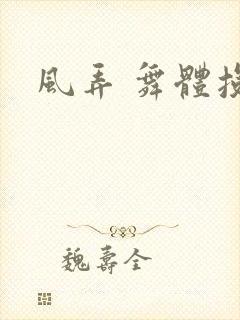 風弄 舞體
魏壽全